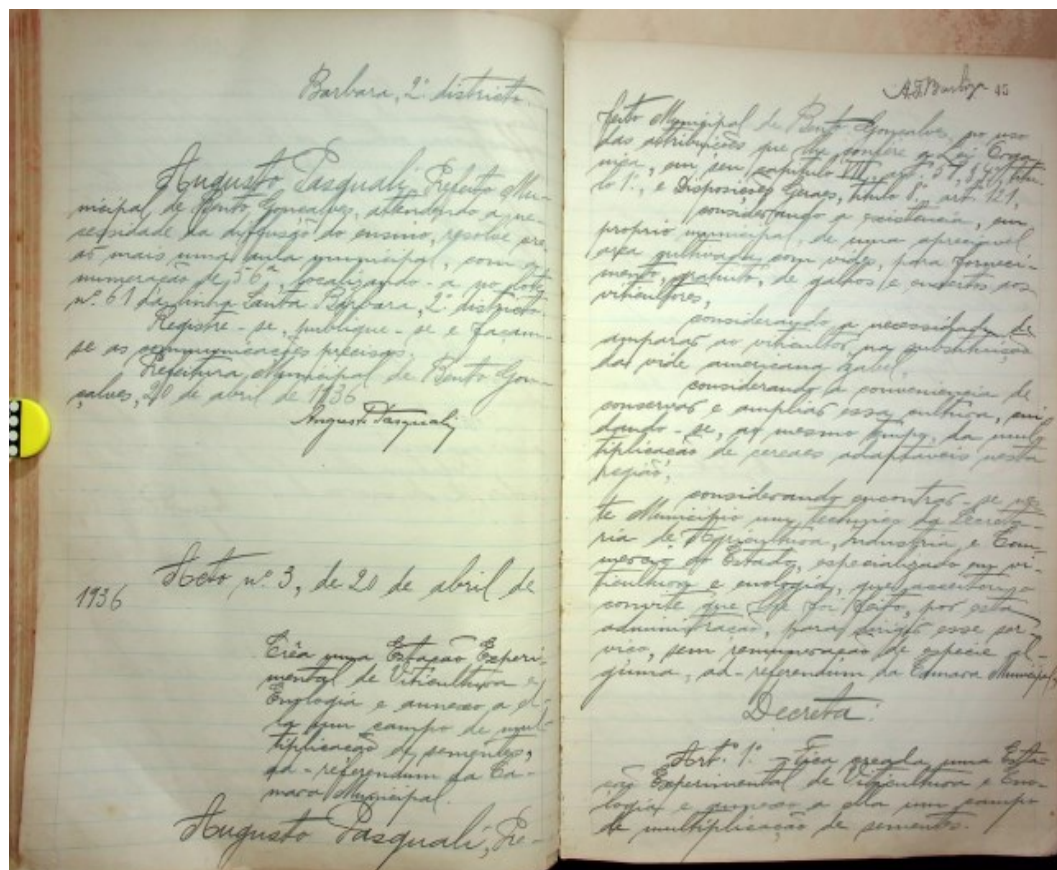 Barbara, 2º districto.
Augusto Pasquali, Prefeito Mu-
nicipal de Bento Gonçalves, attendendo a ne-
cessidade da diffusão do ensino, resolve cre-
ar mais uma aula municipal, com a
numeração de 56ª, localizando-a no lote
nº 61 da linha Santa Barbara, 2º districto.
Registre-se, publique-se e façam-
se as communicações precisas.
Prefeitura Municipal de Bento Gon-
çalves, 20 de abril de 1936
Augusto Pasquali
Acto nº 3, de 20 de abril de
1936
Crêa uma Estação Experi-
mental de Viticultura e
Enologia e annexo a el-
la um campo de mul-
tiplicação de sementes,
ad-referendum da Ca-
mara Municipal.
Augusto Pasquali, Pre-
A.J.Barboza 45
feito Municipal de Bento Gonçalves, no uso
das attribuições que lhe confere a Lei Orga-
nica, em seu capitulo VII, art. 57, § 4º, titu-
lo 1º, e Disposições Geraes, titulo 8º, art. 121,
considerando a existencia, em
proprio municipal, de uma apreciavel
area cultivada com vides, para forneci-
mento, gratuito, de galhos e enxertos aos
viticultores,
considerando a necessidade de
amparar ao viticultor, na substituição
da vide americana Izabel,
considerando a conveniencia de
conservar e ampliar essa cultura, cui-
dando-se, ao mesmo tempo, da mul-
tiplicação de cereaes adaptaveis nesta
região,
considerando encontrar-se nes-
te Municipio um technico da Secreta-
ria de Agricultura, Industria, e Com-
mercio do Estado, especializado em vi-
ticultura e enologia, que acceitou o
convite que lhe foi feito, por esta
administração, para dirigir esse ser-
viço, sem remuneração de especie al-
guma, ad-referendum da Camara Municipal,
Decreta:
Artº. 1º - Fica creada uma Esta-
ção Experimental de Viticultura e Eno-
logia e annexo a ella um campo
de multiplicação de sementes.